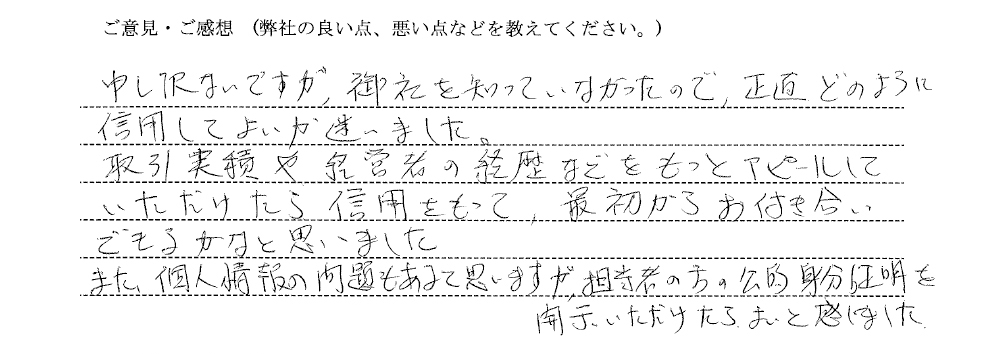 ご意見・ご感想　(弊社の良い点、悪い点などを教えてください。)
申し訳ないですが、御社を知っていなかったので、正直どのように
信用してよいか迷いました。
取引実績や経営者の経歴などをもっとアピールして
いただけたら信用をもって、最初からお付き合い
できるかなと思いました
また、個人情報の問題もあると思いますが、担当者の方の公的身分証明を
開示いただけたらよいと感じました